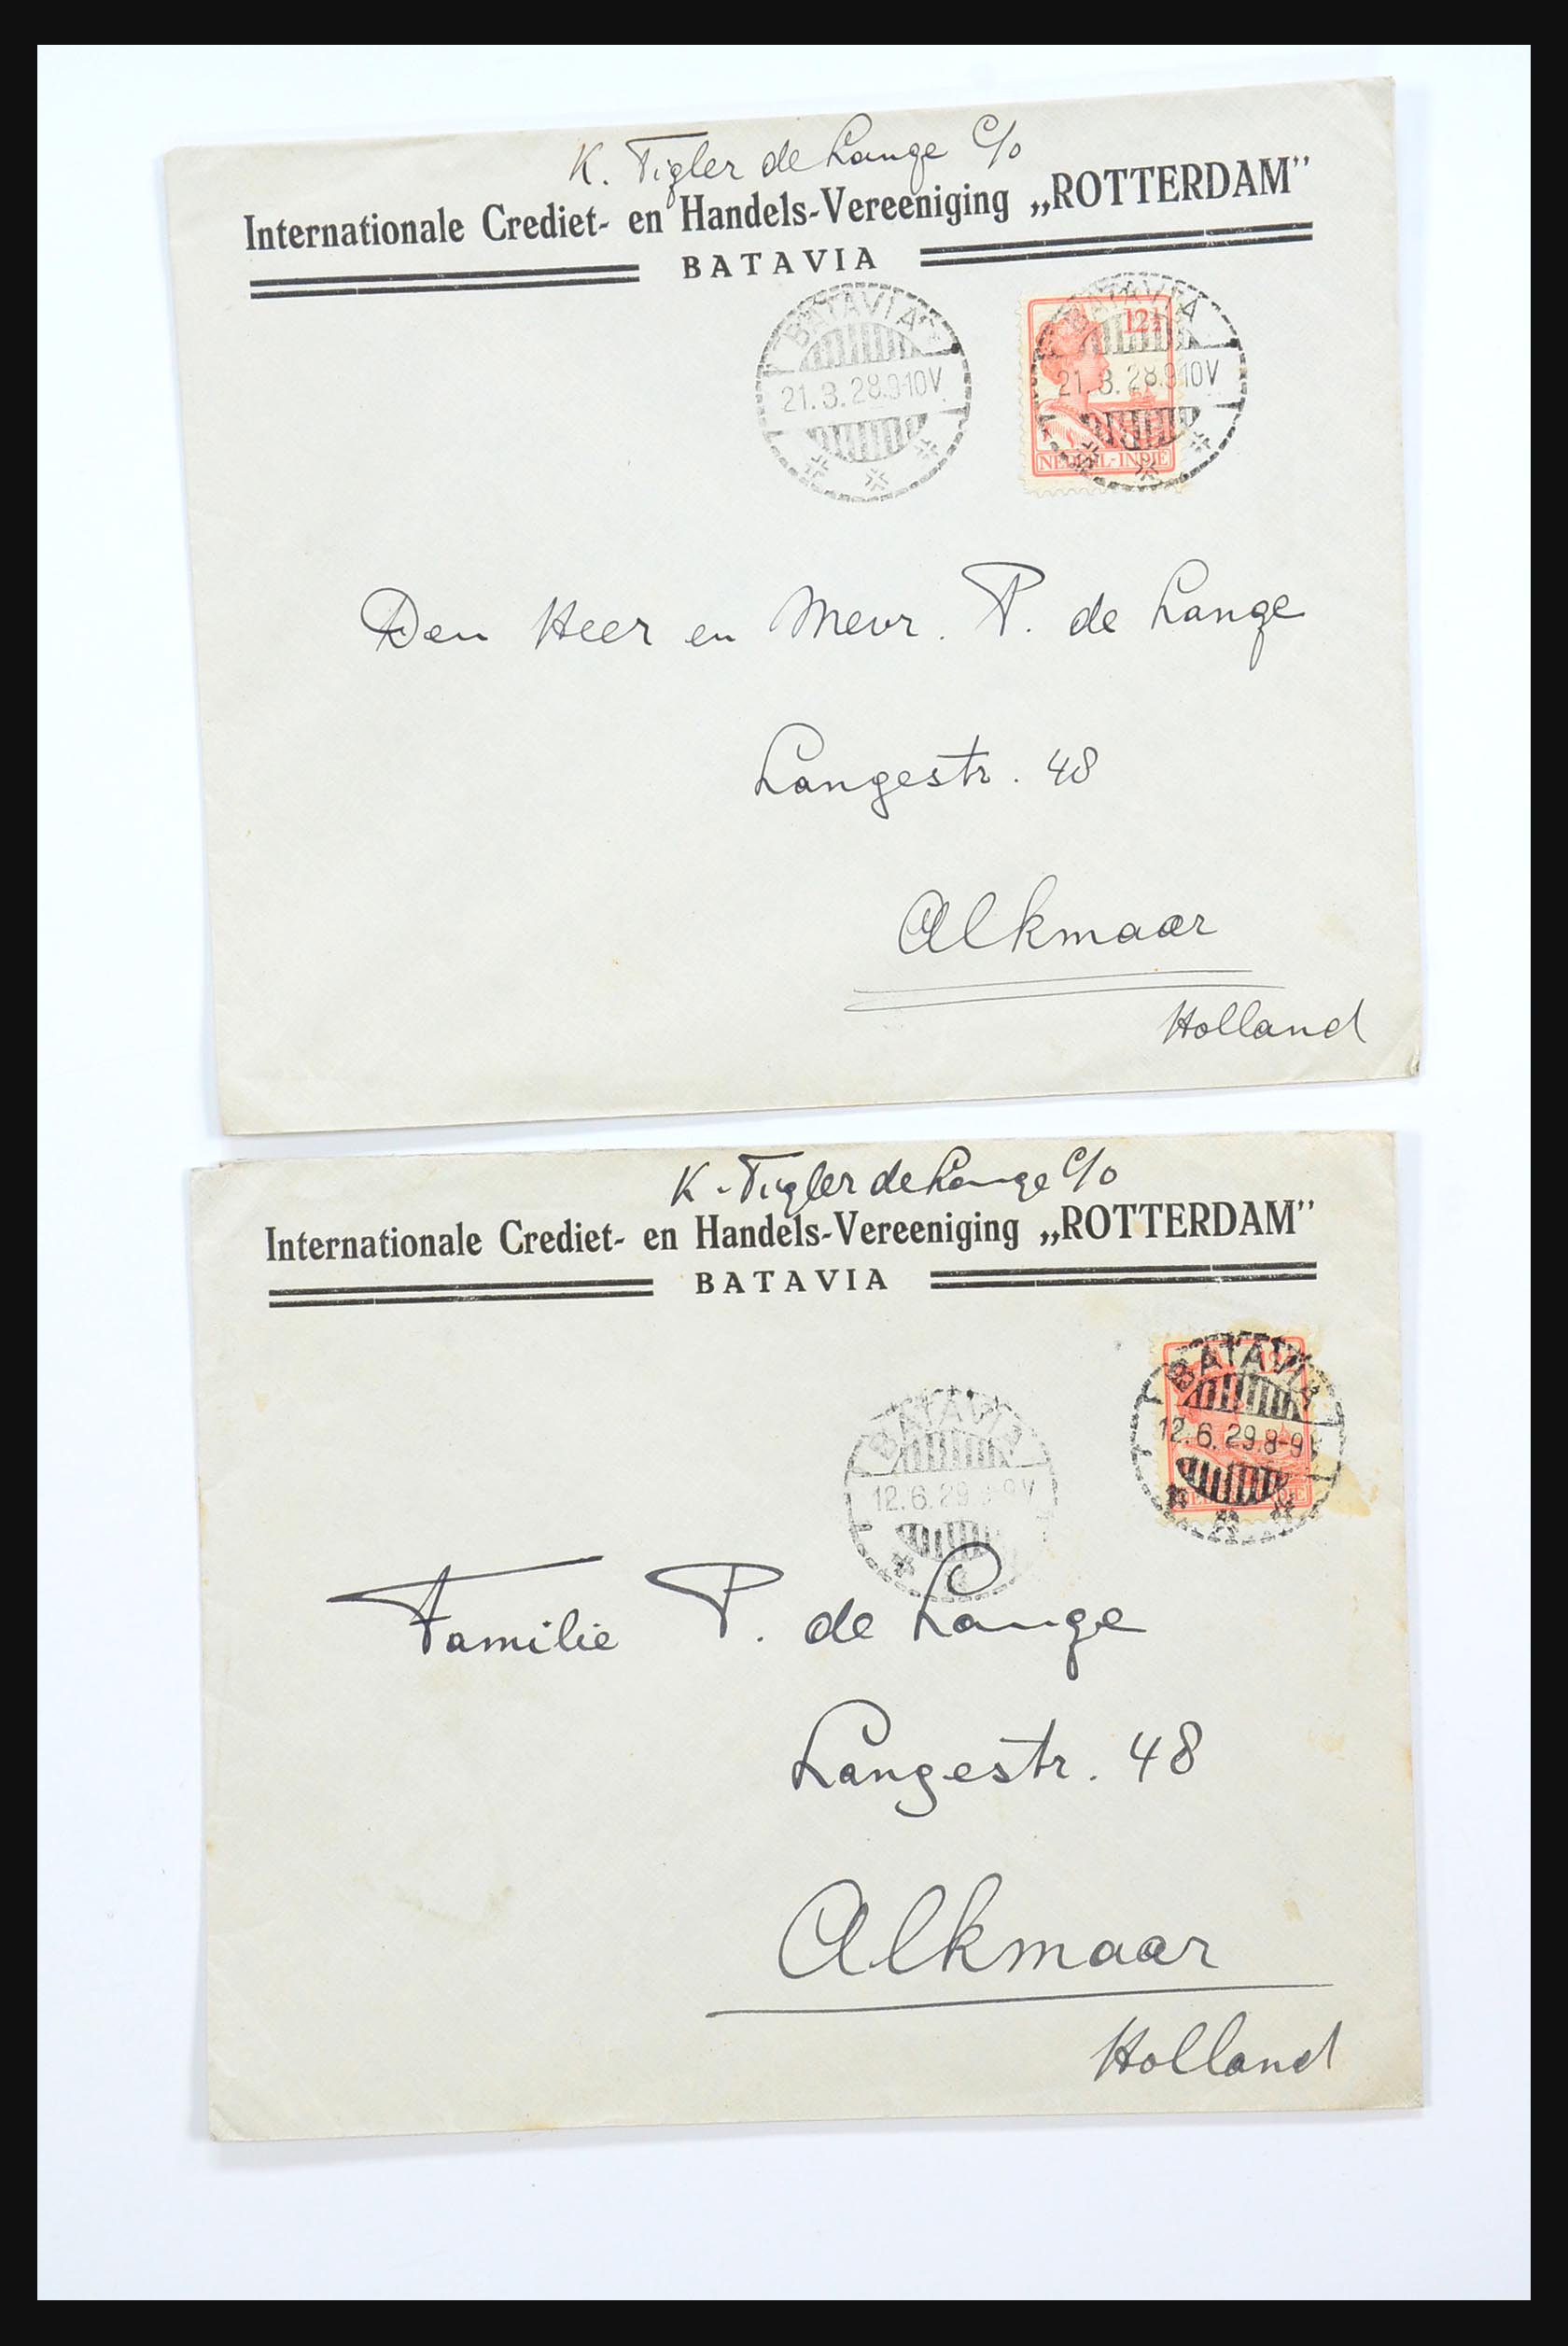 K. Tigler de Lange C/o
Internationale Crediet- en Handels-Vereeniging „ROTTERDAM”
BATAVIA
BATAVIA
21.3.28.9-10V
12½
BATAVIA
21.3.28.9-10V
NED.-INDIE
Den Heer en Mevr. P. de Lange
Langestr. 48
Alkmaar
Holland
K. Tigler de Lange C/o
Internationale Crediet- en Handels-Vereeniging „ROTTERDAM”
BATAVIA
BATAVIA
12.6.29.8-9
BATAVIA
12.6.29 8-9V
Familie P. de Lange
Langestr. 48
Alkmaar
Holland